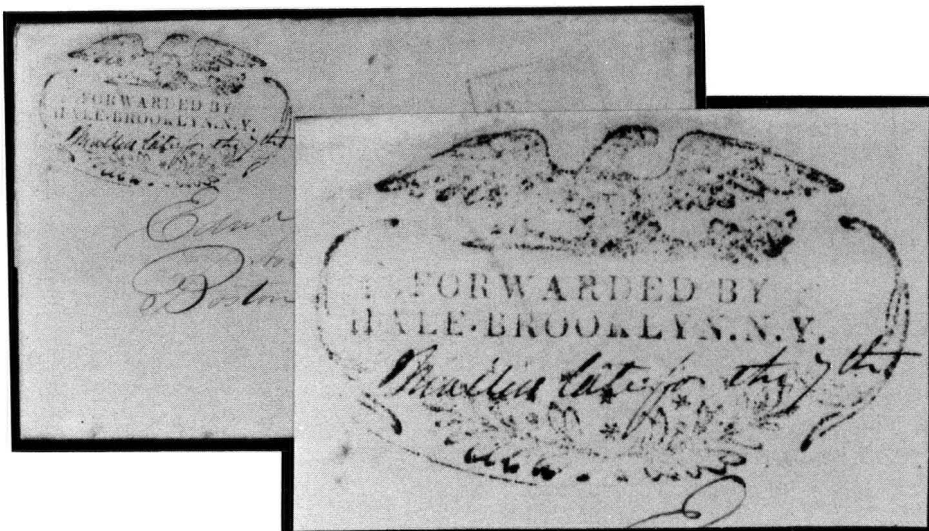 FORWARDED BY
HALE·BROOKLYN.N.Y.
Mailed late for the 7th
Boston
FORWARDED BY
HALE·BROOKLYN.N.Y.
Mailed late for the 7th